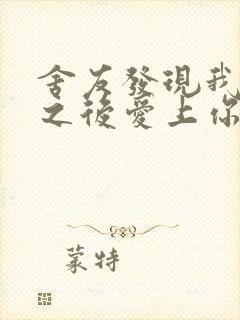 舍友發現我
之後愛上你
蒙特